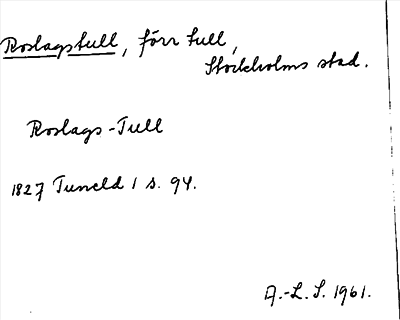 Roslagstull, förr tull,
Stockholms stad.
Roslags-Tull
1827 Tuneld 1 s. 94.
A.-L. S. 1961.